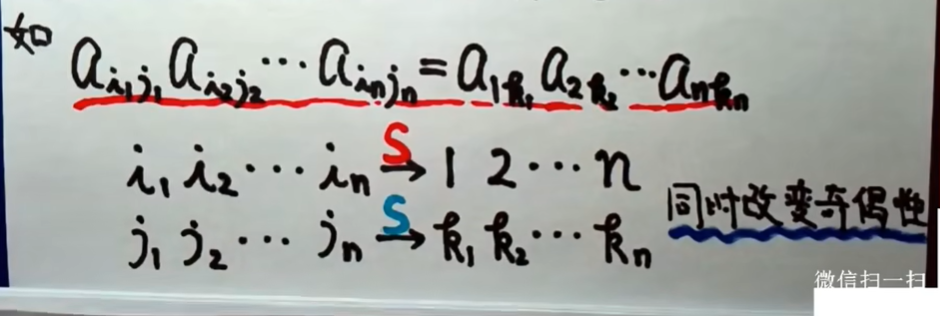 如 aᵢ₁ⱼ₁ aᵢ₂ⱼ₂ ··· aᵢₙⱼₙ = a₁ₖ₁ a₂ₖ₂ ··· aₙₖₙ
i₁ i₂ ··· iₙ S→ 1 2 ··· n
j₁ j₂ ··· jₙ S→ k₁ k₂ ··· kₙ 同时改变奇偶性
微信扫一扫